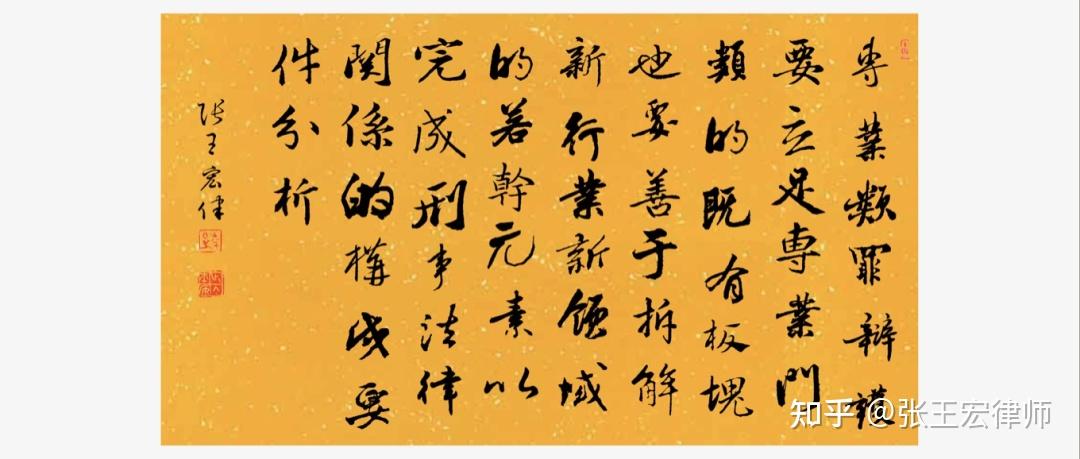 専業類罪辯護
要立足専業門
類的既有板塊
也要善于拆解
新行業新領域
的若幹元素以
完成刑事法律
関係的構成要
件分析
张王宏律
知乎 @张王宏律师